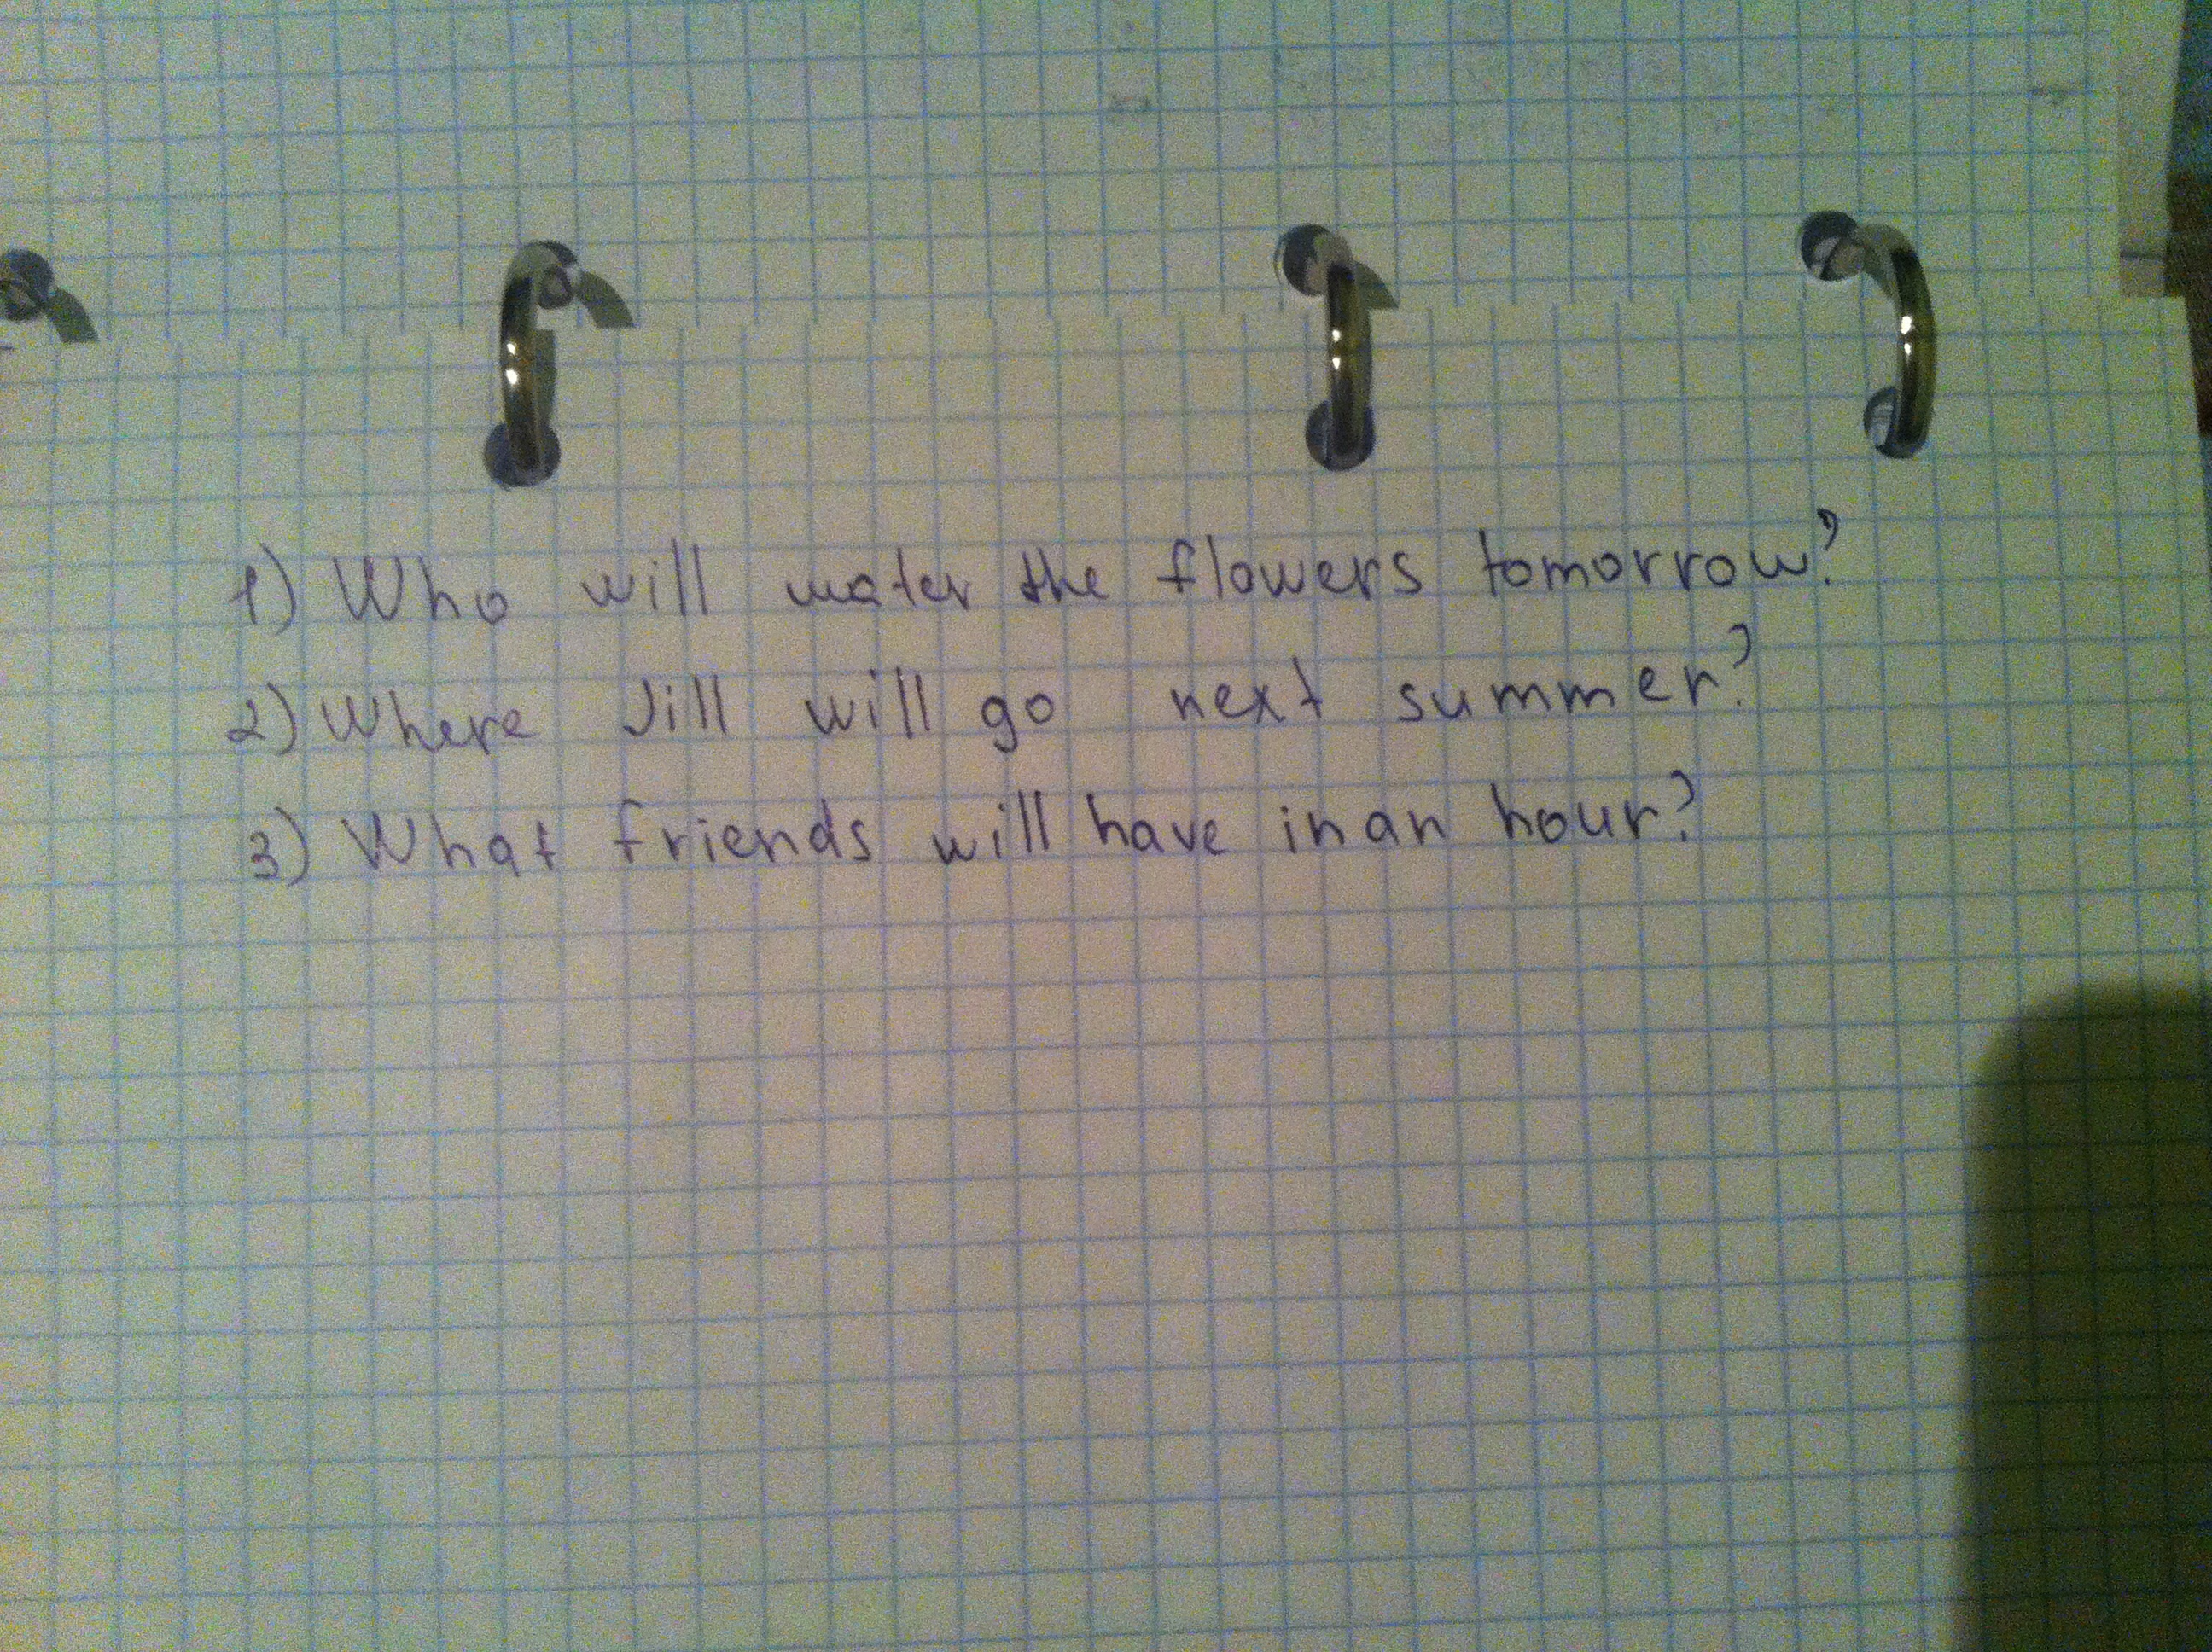 1) Who will water the flowers tomorrow?
2) Where Jill will go next summer?
3) What friends will have in an hour?